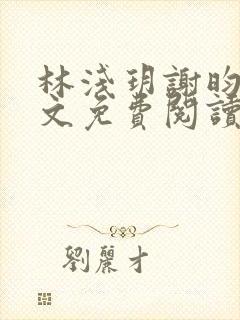 林淺玥謝昀
文免費閱讀
劉麗才